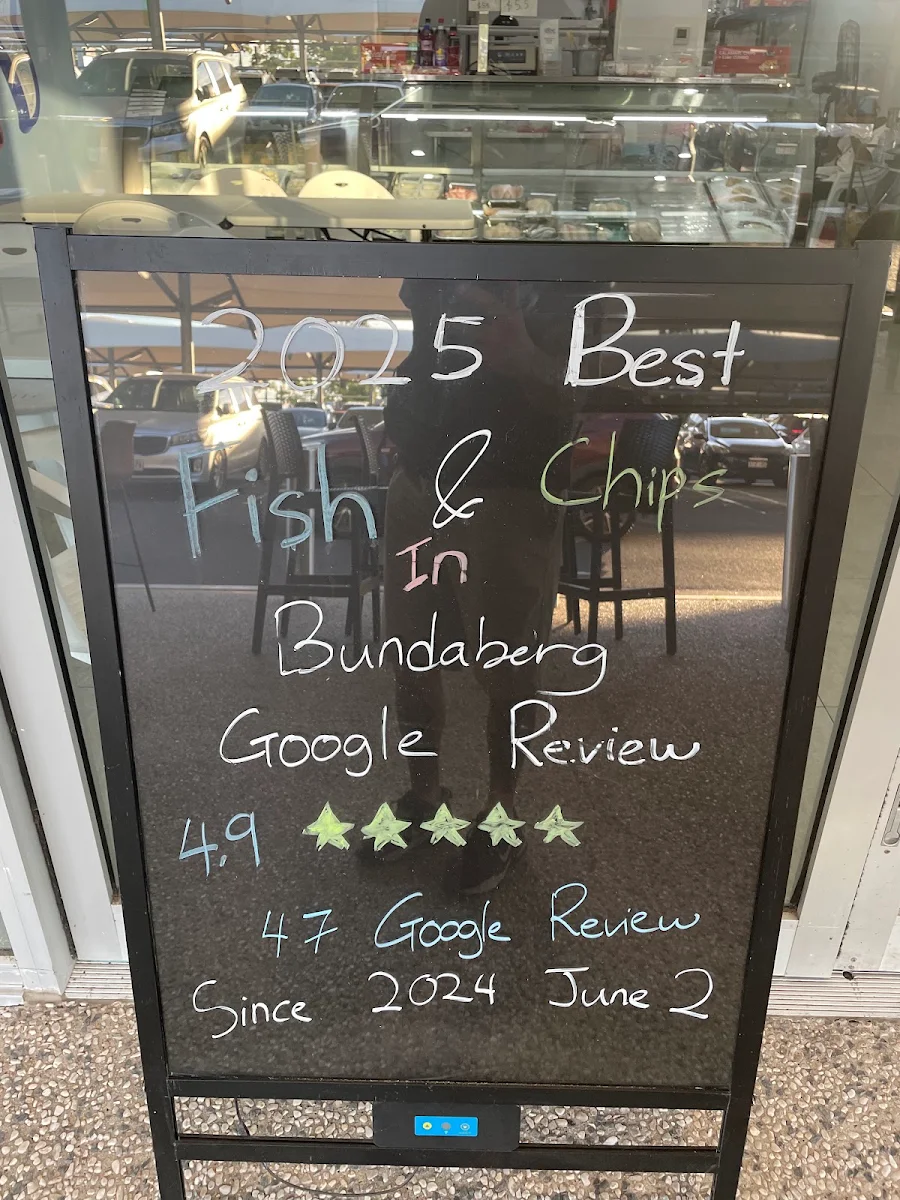 2025 Best
Fish & Chips
In
Bundaberg
Google Review
4.9 ★★★★★
47 Google Review
Since 2024 June 2